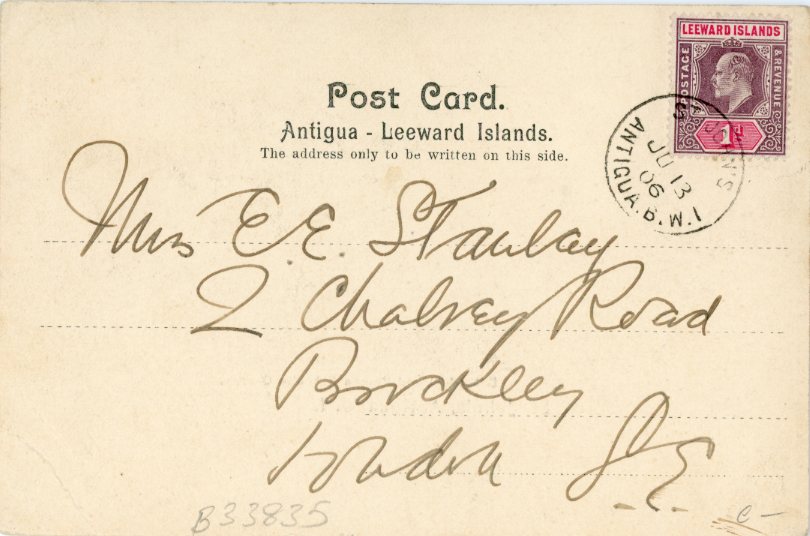 LEEWARD ISLANDS
POSTAGE & REVENUE
1d
Post Card.
Antigua - Leeward Islands.
The address only to be written on this side.
ST JOHN'S
JU 13
06
ANTIGUA.B.W.I
Mrs E.E. Stanley
2 Chalsey Road
Brockley
London S.E.
B33835
C -